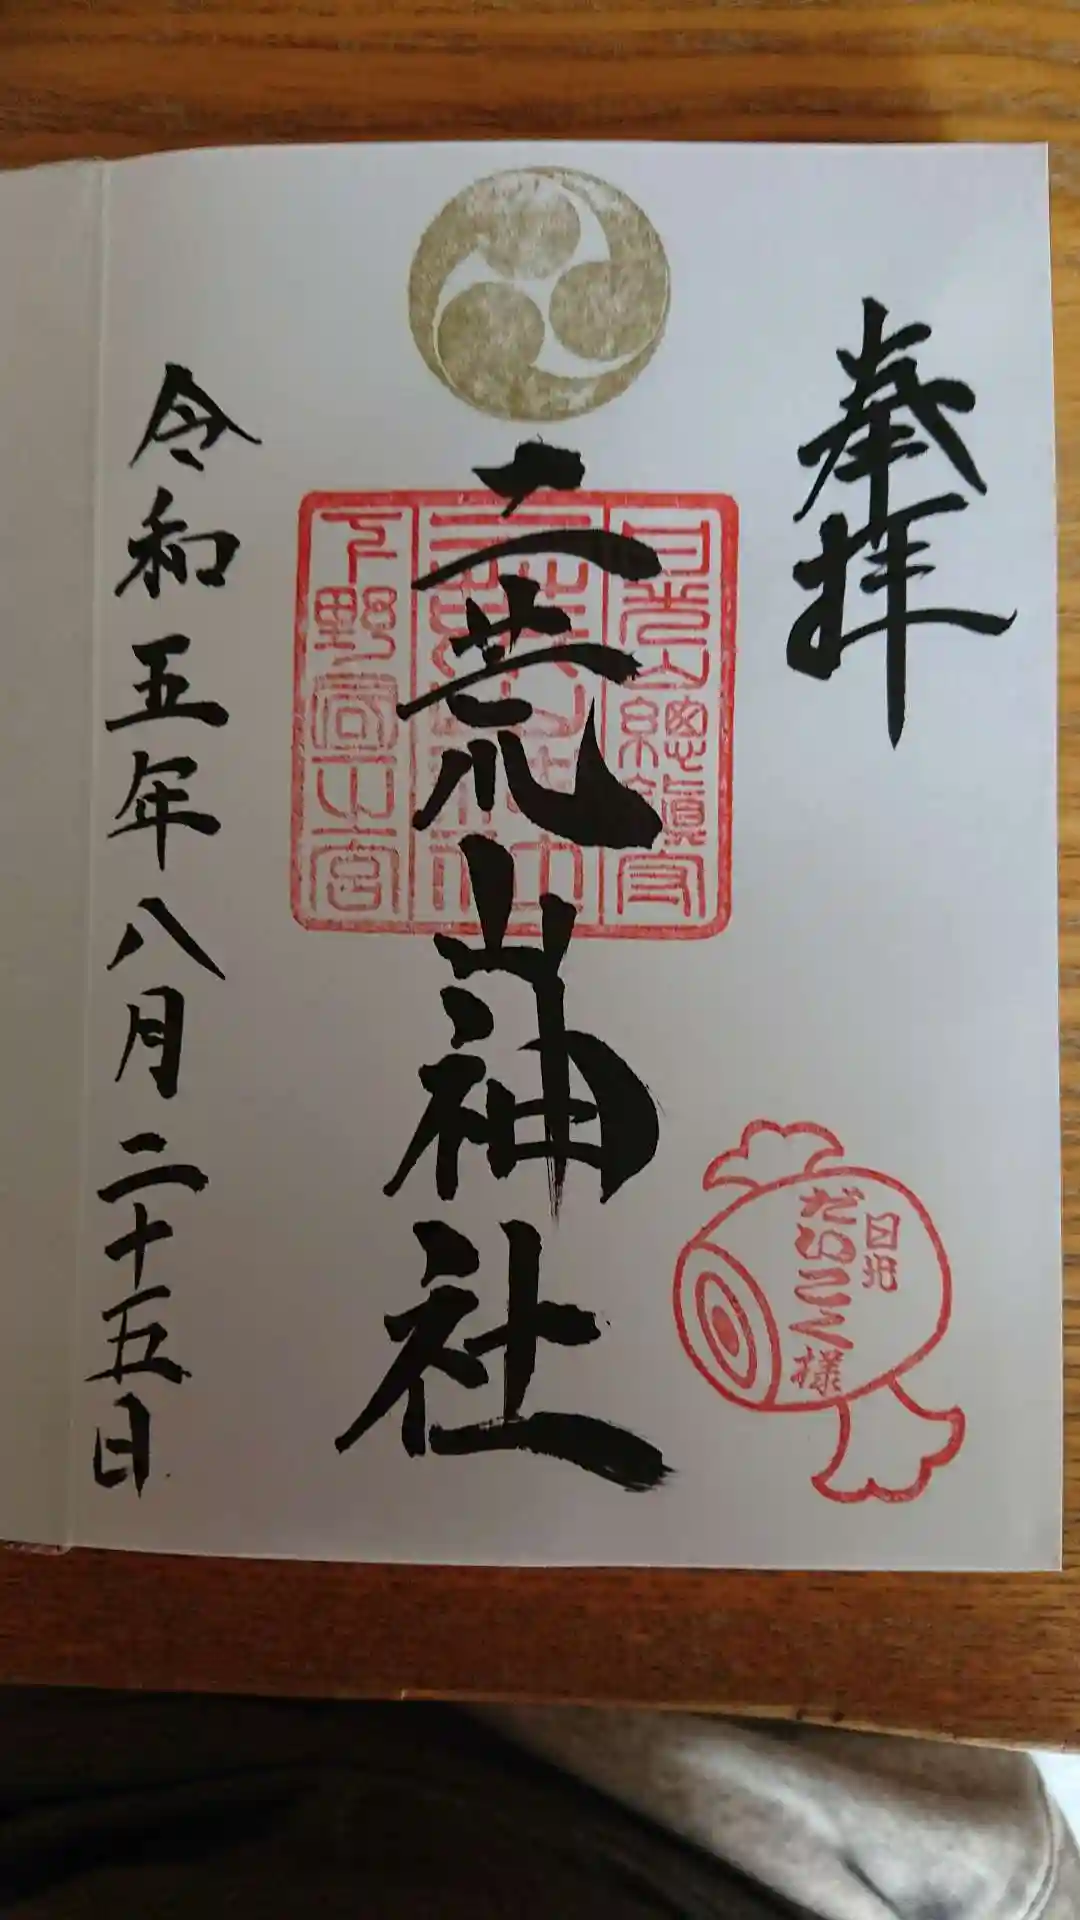 奉拝
日光
だいこく様
二荒山神社
日光山總鎮守
二荒山神社
下野國一宮
令和五年八月二十五日